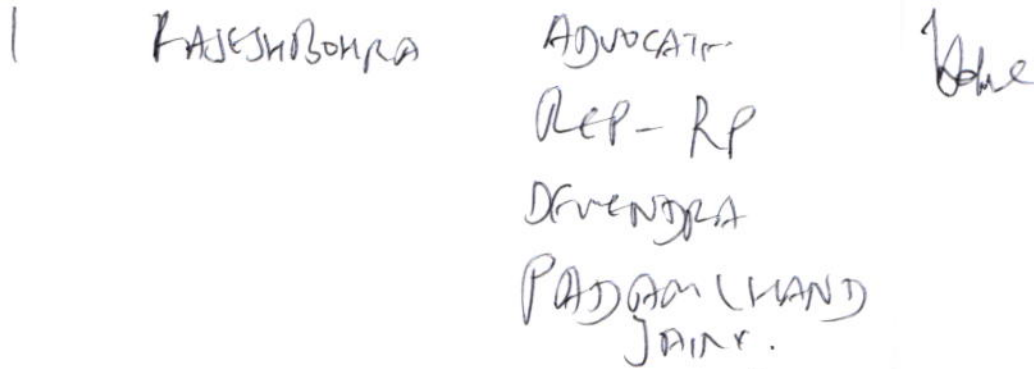 1 RAJESH BOHRA ADVOCATE
REP - RP
DEVENDRA
PADAM CHAND
JAIN.